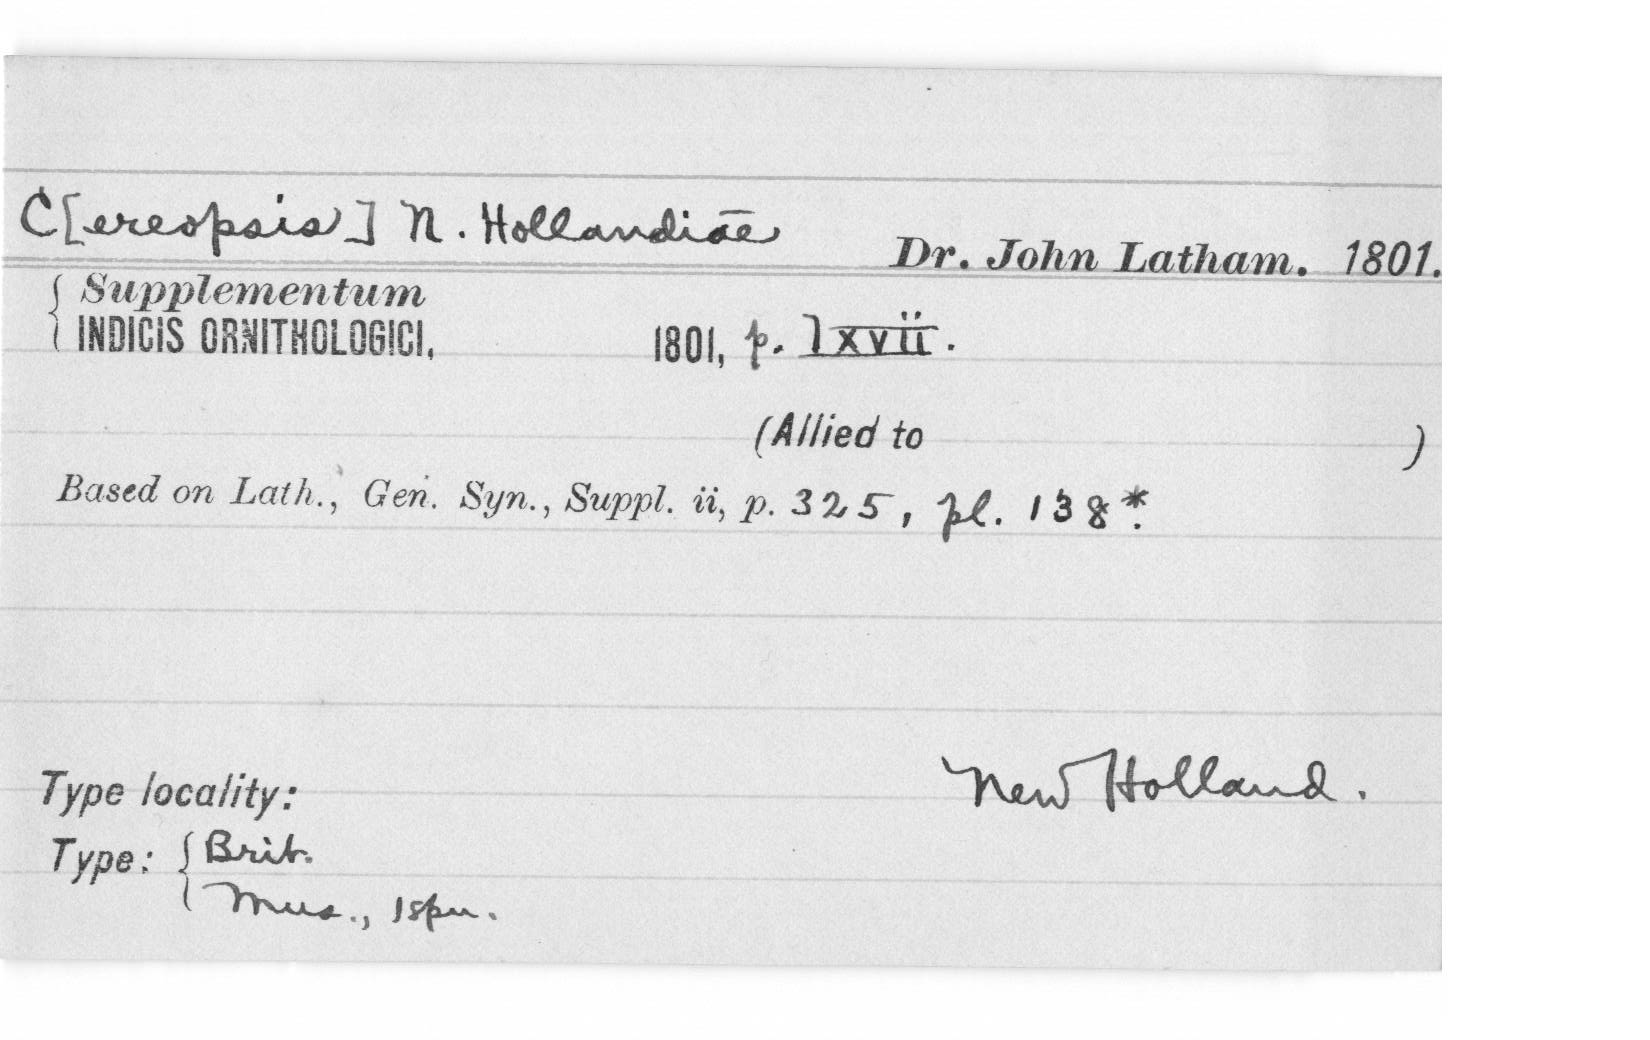 C[ereopsis] N. Hollandiae Dr. John Latham. 1801.
Supplementum
INDICIS ORNITHOLOGICI, 1801, p. lxvii.
(Allied to )
Based on Lath., Gen. Syn., Suppl. ii, p. 325, pl. 138*.
Type locality: New Holland.
Type: Brit.
Mus., 1 spm.